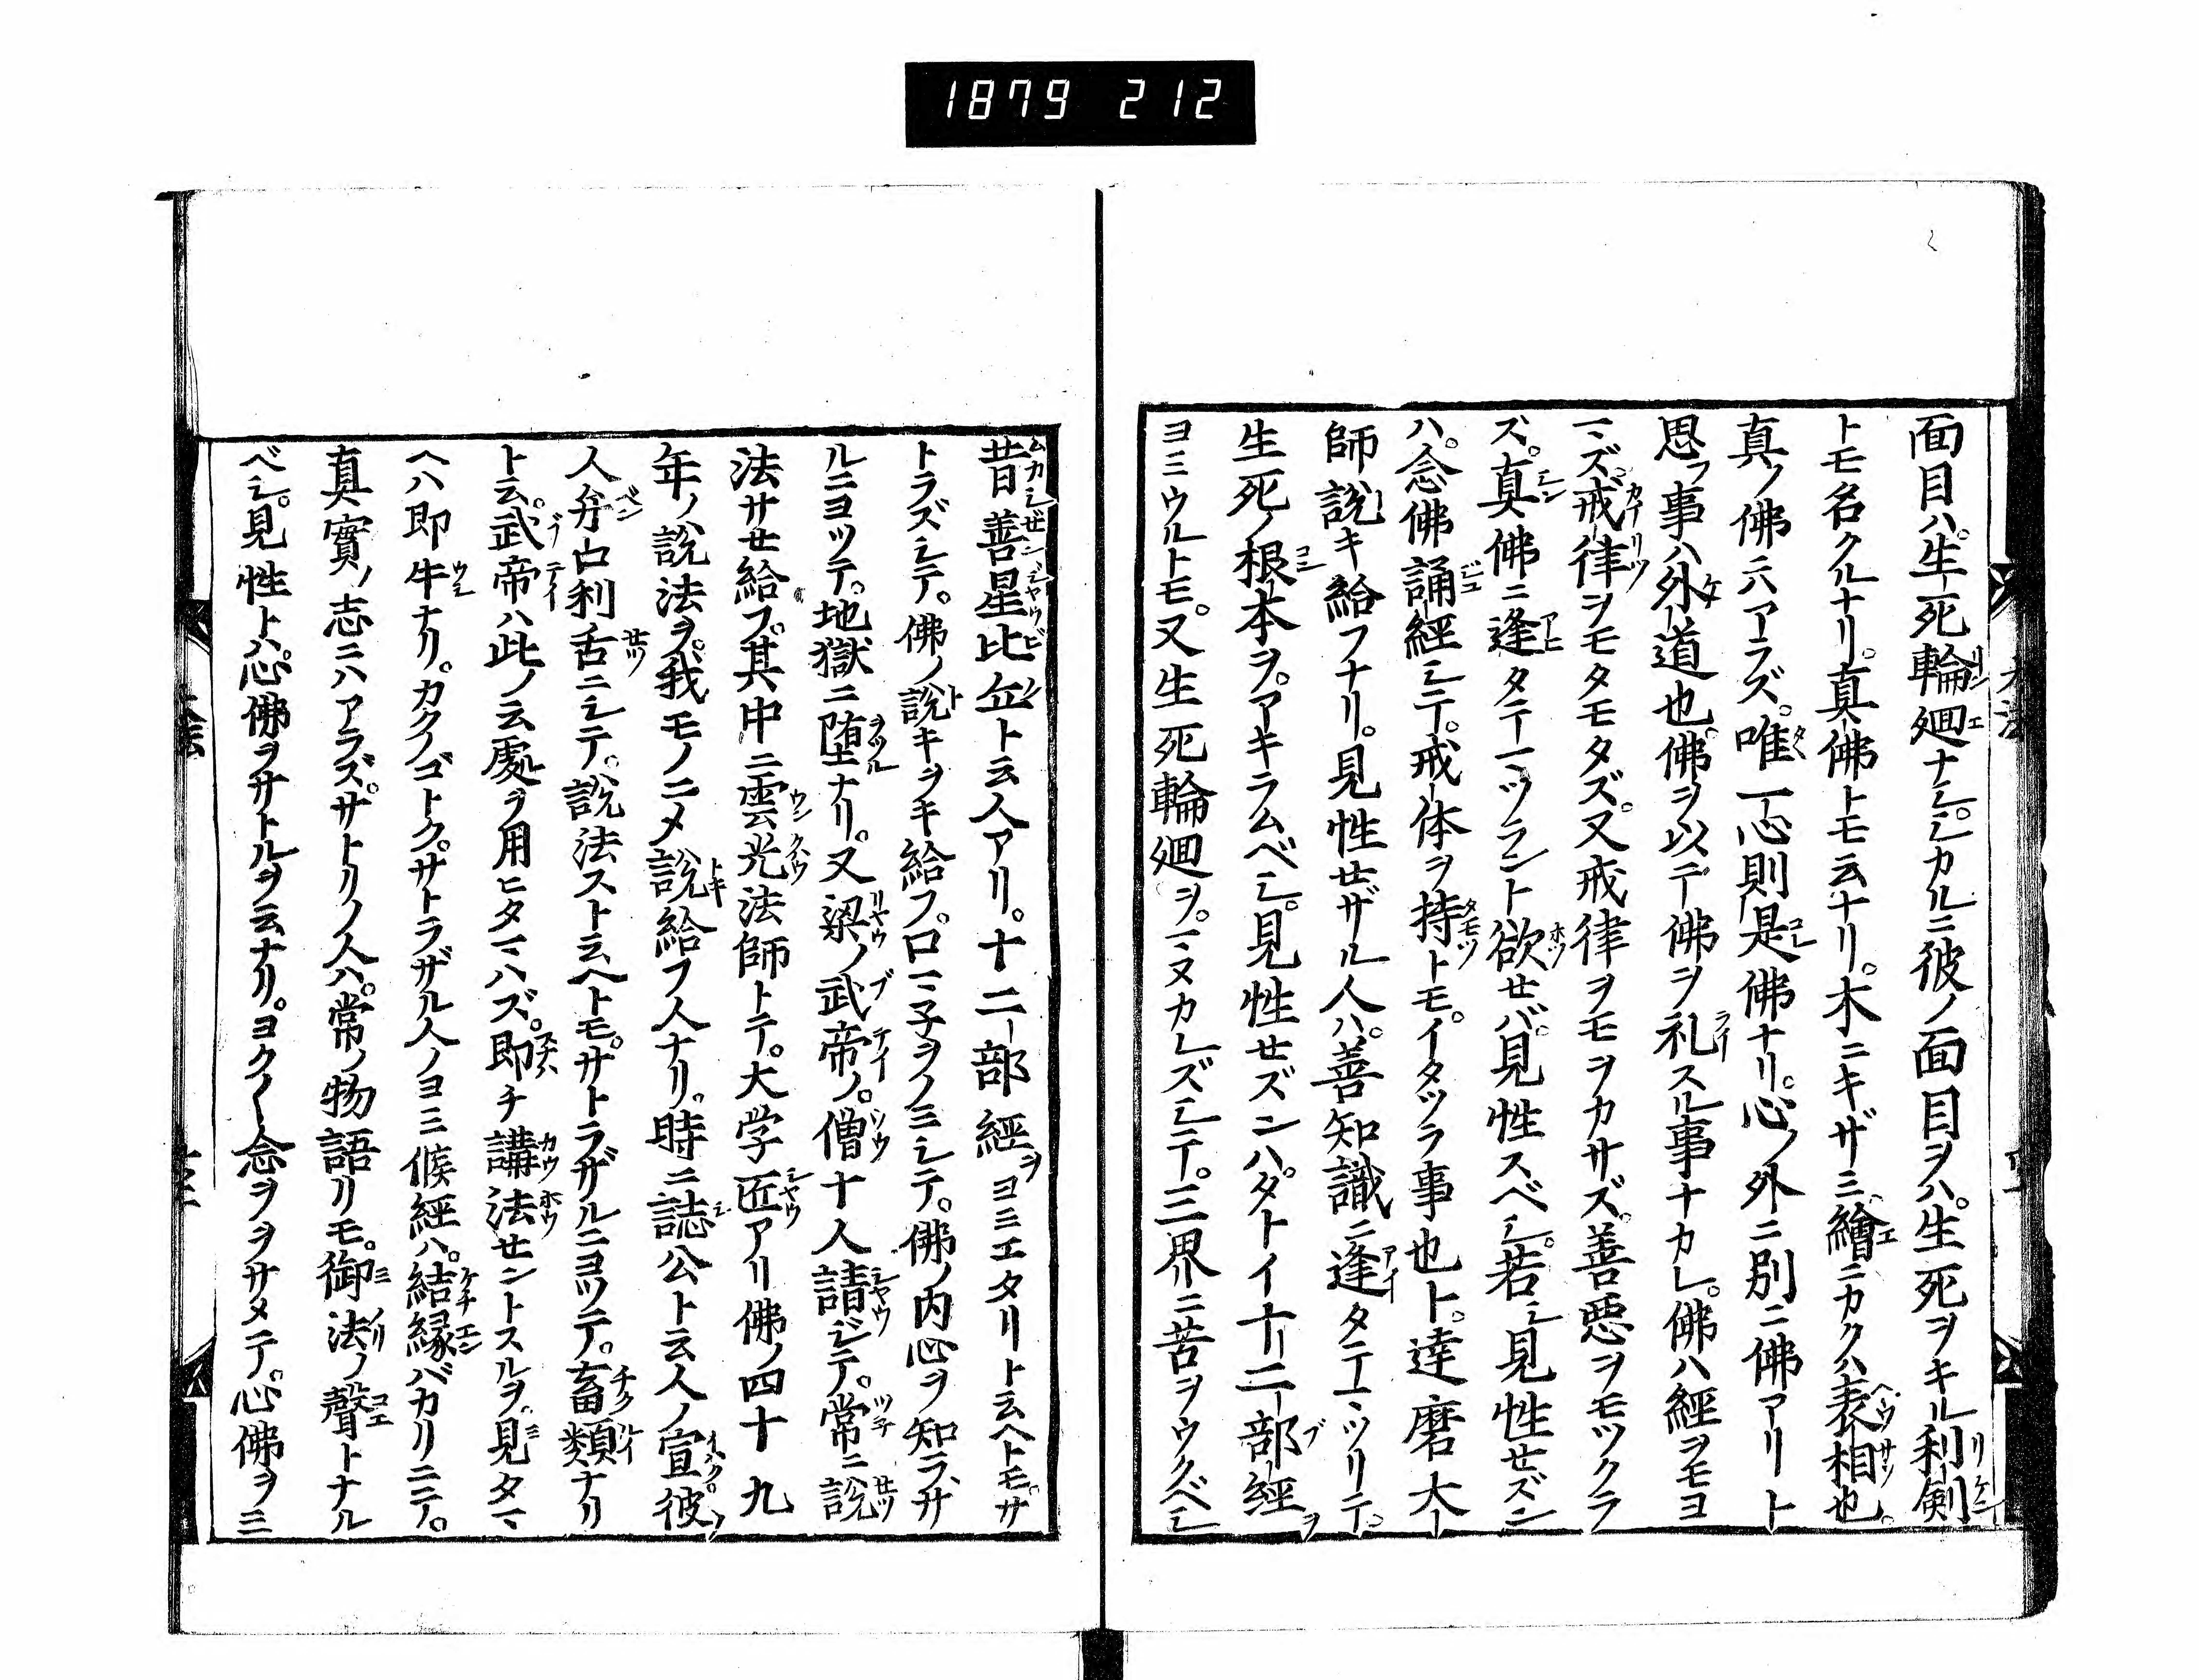 1879 212
面目ハ。生死輪廻ナシ。シカルニ彼ノ面目ヲハ。生死ヲキル利剣
トモ名クルナリ。真佛トモ云ナリ。木ニキザミ繪ニカクハ表相也。
真ノ佛ニハアラズ。唯一心則是佛ナリ。心ノ外ニ別ニ佛アリト
思フ事ハ外道也。佛ヲ以テ佛ヲ礼スル事ナカレ。佛ハ經ヲモヨ
マズ。戒律ヲモタモタズ。又戒律ヲモヲカサズ。善悪ヲモツクラ
ズ。真佛ニ逢タテマツラント欲セバ。見性スベシ。若シ見性セズン
ハ。念佛誦經シテ。戒体ヲ持トモ。イタヅラ事也ト。達磨大
師説キ給フナリ。見性セザル人ハ。善知識ニ逢タテマツリテ。
生死ノ根本ヲ。アキラムベシ。見性セズンハ。タトイ十二部經ヲ
ヨミウルトモ。又生死輪廻ヲ。マヌカレズシテ。三界ニ苦ヲウクベシ
昔善星比丘ト云人アリ。十二部經ヲヨミエタリト云ヘトモ。サ
トラズシテ。佛ノ説キヲキ給フ。口マ子ヲノミシテ。佛ノ内心ヲ知ラサ
ルニヨツテ。地獄ニ堕ナリ。又梁ノ武帝ノ。僧十人請ジテ。常ニ説
法サセ給フ。其中ニ雲光法師トテ。大学匠アリ佛ノ四十九
年ノ説法ヲ。我モノニメ説給フ人ナリ。時ニ誌公ト云人ノ宣ク。彼ノ
人弁口利舌ニシテ。説法スト云ヘトモ。サトラザルニヨツテ。畜類ナリ
ト云。武帝ハ此ノ云處ヲ用ヒタマハズ。即チ講法セントスルヲ。見タマ
ヘハ即牛ナリ。カクノゴトク。サトラザル人ノヨミ候經ハ。結縁バカリニテ。
真實ノ志ニハアラズ。サトリノ人ハ。常ノ物語リモ。御法ノ聲トナル
ベシ。見性トハ。心佛ヲサトルヲ云ナリ。ヨク〱念ヲヲサメテ。心佛ヲミ